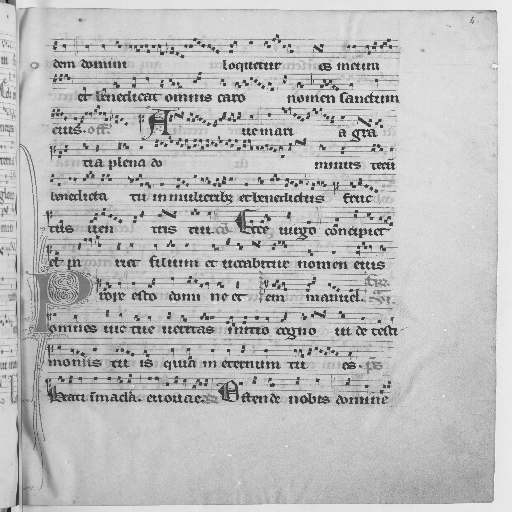 dem domini loquetur os meum
et benedicat omnis caro nomen sanctum
eius. off. Aue mari a gra
tia plena do minus tecu
benedicta tu in mulieribz et benedictus fruc
tus uen tris tui. co Ecce uirgo concipiet
et pa riet filium et uocabitur nomen eius
em manuel.
Prope esto domi ne et
omnes uie tue ueritas initio cogno ui de testi
moniis tu is quia in eternum tu es. ps
Beati inmacla. euouae. Ostende nobis domine